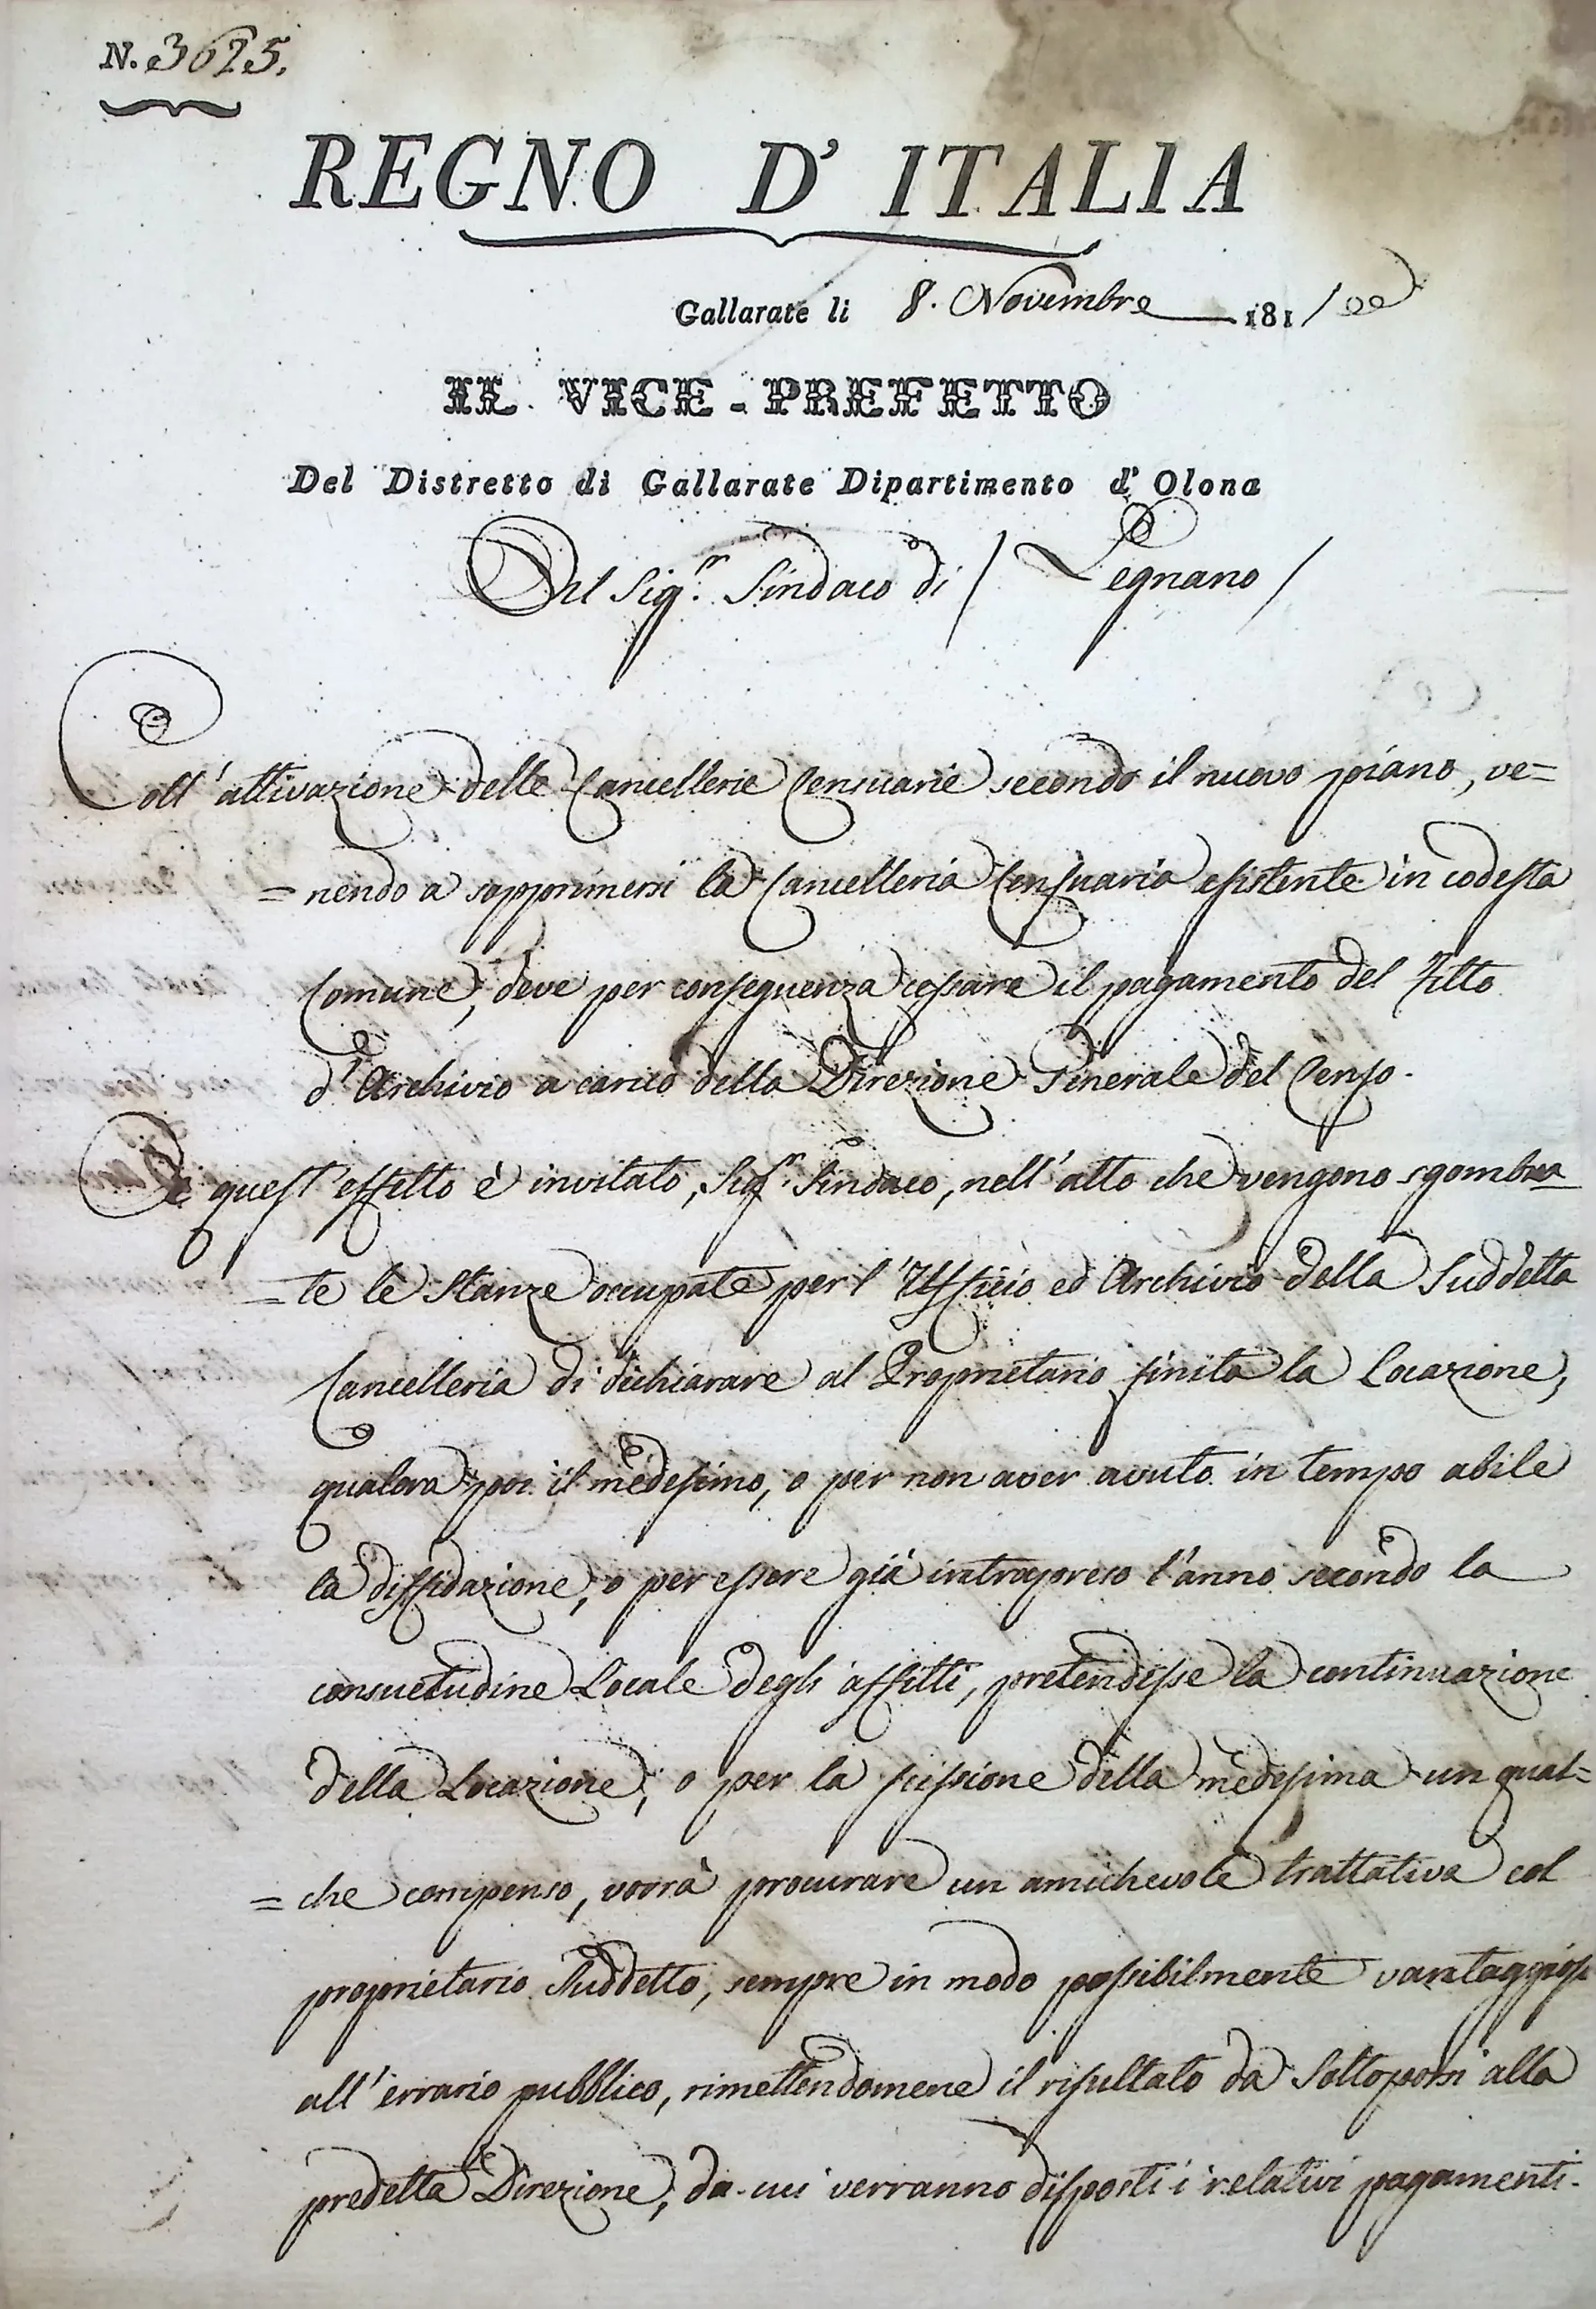 N. 3625.
REGNO D' ITALIA
Gallarate li 8. Novembre 1811
IL VICE-PREFETTO
Del Distretto di Gallarate Dipartimento d' Olona
Al Sig.r Sindaco di / Legnano /
Coll' attivazione delle Cancellerie Censuarie secondo il nuovo piano, ve=
=nendo a sopprimersi la Cancelleria Censuaria esistente in codesta
Comune, deve per conseguenza cessare il pagamento del Fitto
d' Archivio a carico della Direzione Generale del Censo.
A quest' effetto è invitato, Sig.r Sindaco, nell' atto che vengono sgombra
=te le Stanze occupate per l' Uffizio ed Archivio della Suddetta
Cancelleria di dichiarare al Proprietario finita la Locazione,
qualora poi il medesimo, o per non aver avuto in tempo abile
la diffidazione, o per essere già intrapreso l' anno secondo la
consuetudine Locale degli affitti, pretendesse la continuazione
della Locazione, o per la scissione della medesima un qual=
=che compenso, vorrà procurare un amichevole trattativa col
proprietario Suddetto, sempre in modo possibilmente vantaggioso
all' errario pubblico, rimettendomene il risultato da Sottoporsi alla
predetta Direzione, da cui verranno disposti i relativi pagamenti.